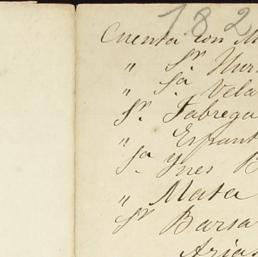 182
Cuenta con M
" Sr. Nuñ
" Sa Vela
Sr. Fabrega
" Esfant
Sa Ynes B
" Mata
Sr Barsa
Arias